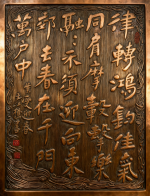 律轉鴻鈞佳氣
同肩摩轂擊樂
融融不須迎向東
郊去春在千門
萬戶中